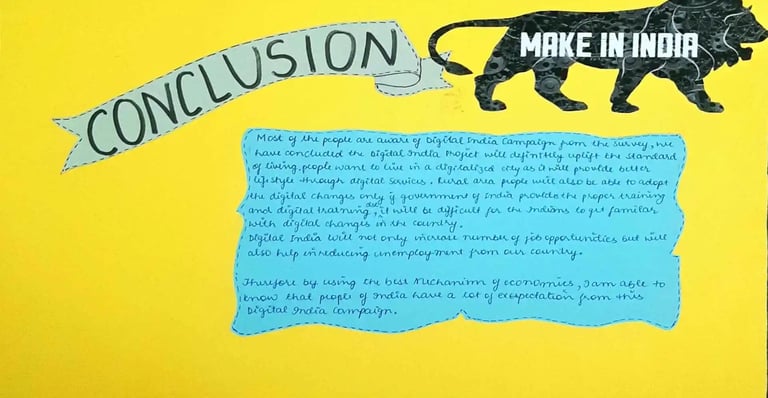 CONCLUSION
MAKE IN INDIA
Most of the people are aware of Digital India Campaign from the survey, we
have concluded the Digital India Project will definitely uplift the standard
of living, people want to live in a digitalized city as it will provide better
lifestyle through digital services. Rural area people will also be able to adopt
the digital changes only if government of India provide the proper training
and digital training, it will be difficult for the Indians to get familiar
with digital changes in the country.
Digital India will not only increase number of job opportunities but will
also help in reducing unemployment from our country.
Therefore by using the best Mechanism of economics, I am able to
know that people of India have a lot of exespectation from this
Digital India Campaign.